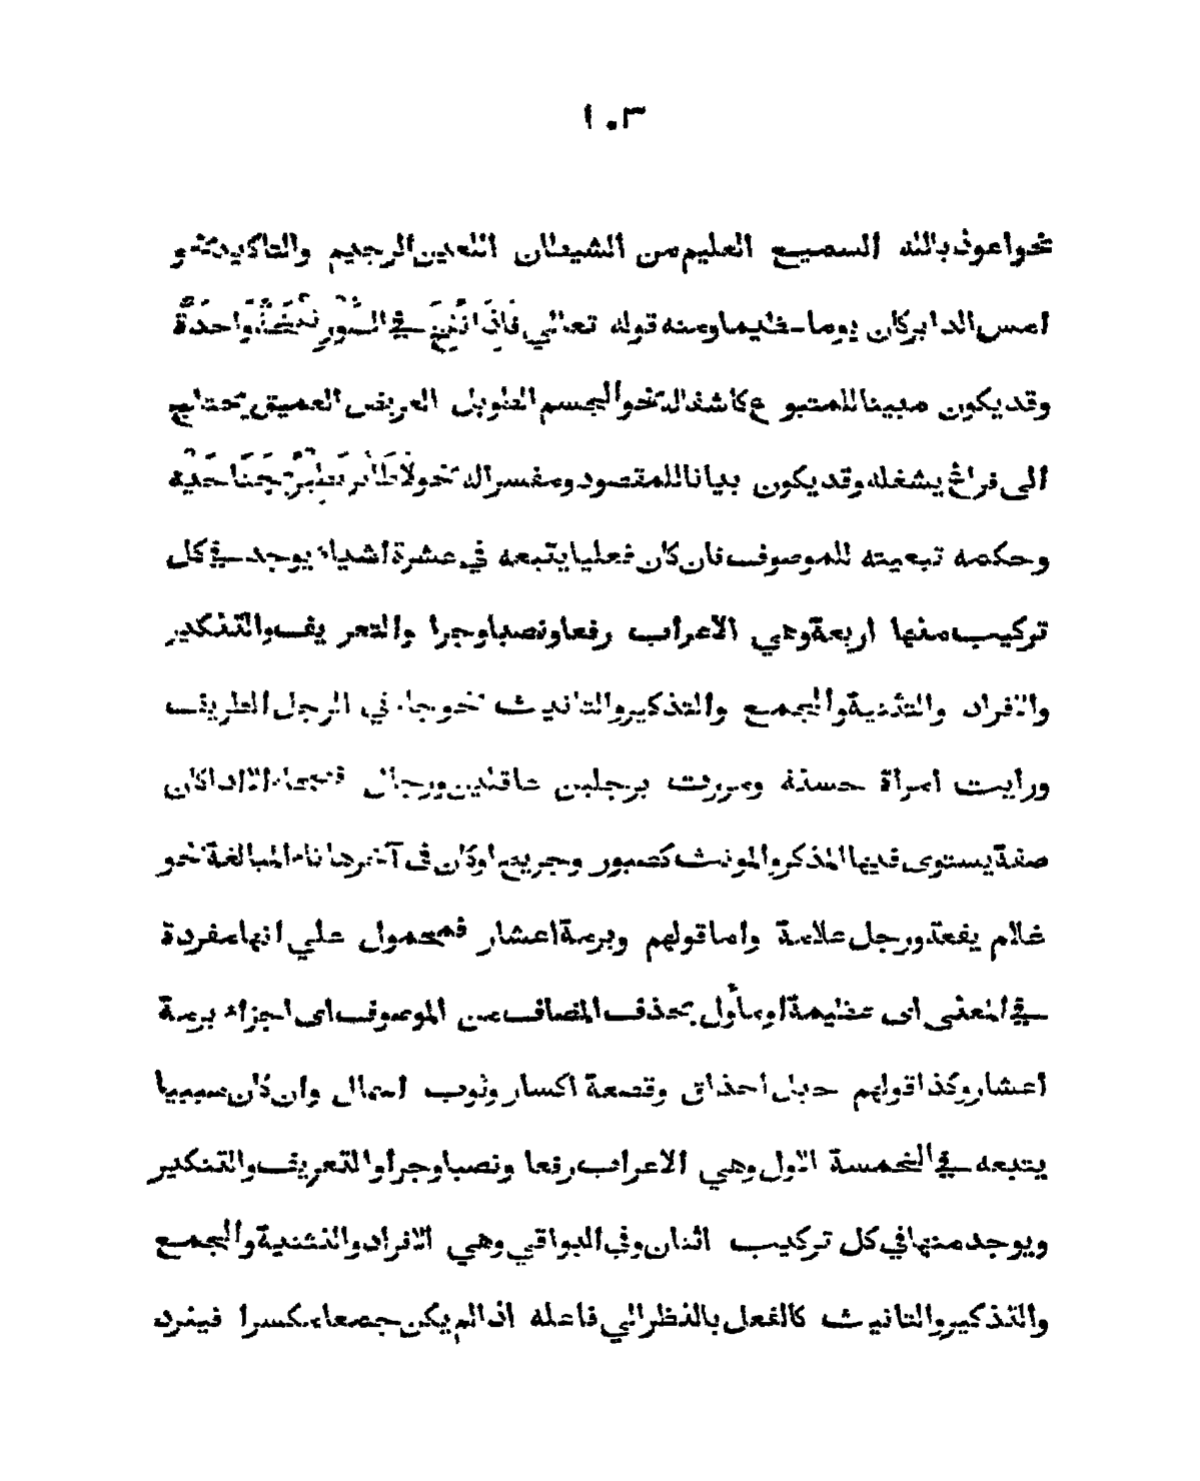 ١٠٣
نحو اعوذ بالله السميع العليم من الشيطان اللعين الرجيم والتاكيد نحو
امس الدابر كان يوما عظيما ومنه قوله تعالي فَاِذَا نُفِخَ في الصُّوْرِ نَفْخَةٌ وَاحدَةٌ
وقد يكون مبينا للمتبوع كاشفا له نحو الجسم الطويل العريض العميق يحتاج
الى فراغ يشغله وقد يكون بيانا للمقصود ومفسرا له نحو لَاطَائرٍ يَطِيْرُ بجَنَاحَيْه
وحكمه تبعيته للموصوف فان كان فعليا يتبعه في عشرة اشياء يوجد في كل
تركيب منها اربعة وهي الاعراب رفعا ونصبا وجرا والتعريف والتنكير
والافراد والتثنية والجمع والتذكير والتانيث نحو جاءني الرجل الظريف
ورايت امراة حسنة ومررت برجلين عاقلين ورجال فجعاء الا اذا كان
صفة يستوى فيها المذكر والمونث كصبور وجريح او كان فى آخرها تاء المبالغة نحو
غلام يفعة ورجل علامة واما قولهم وبرمة اعشار فمحمول علي انها مفردة
في المعنى اى عظيمة او مأول بحذف المضاف من الموصوف اى اجزاء برمة
اعشار وكذا قولهم حبل احذاق وقصعة اكسار وثوب اسمال وان كان سببيا
يتبعه في الخمسة الاول وهي الاعراب رفعا ونصبا وجرا والتعريف والتنكير
ويوجد منها في كل تركيب اثنان وفي البواقي وهي الافراد والتثنية والجمع
والتذكير والتانيث كالفعل بالنظر الي فاعله اذا لم يكن جمعا مكسرا فيفرد